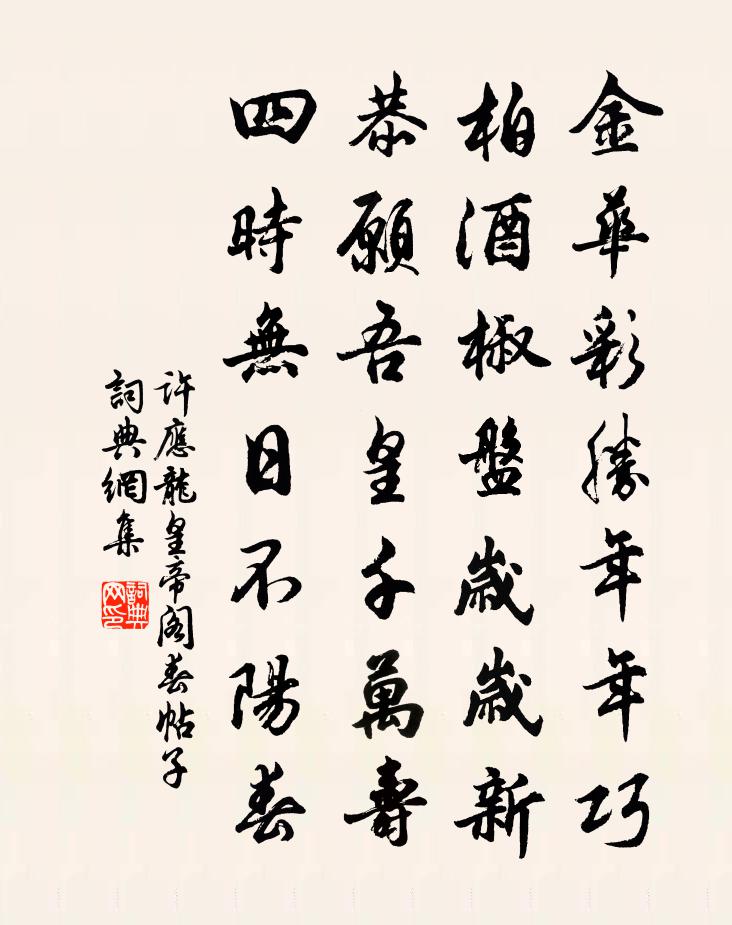 金華彩勝年年巧
柏酒椒盤歲歲新
恭願吾皇千萬壽
四時無日不陽春
許應龍皇帝閣春帖子
詞典網集
詞典网印